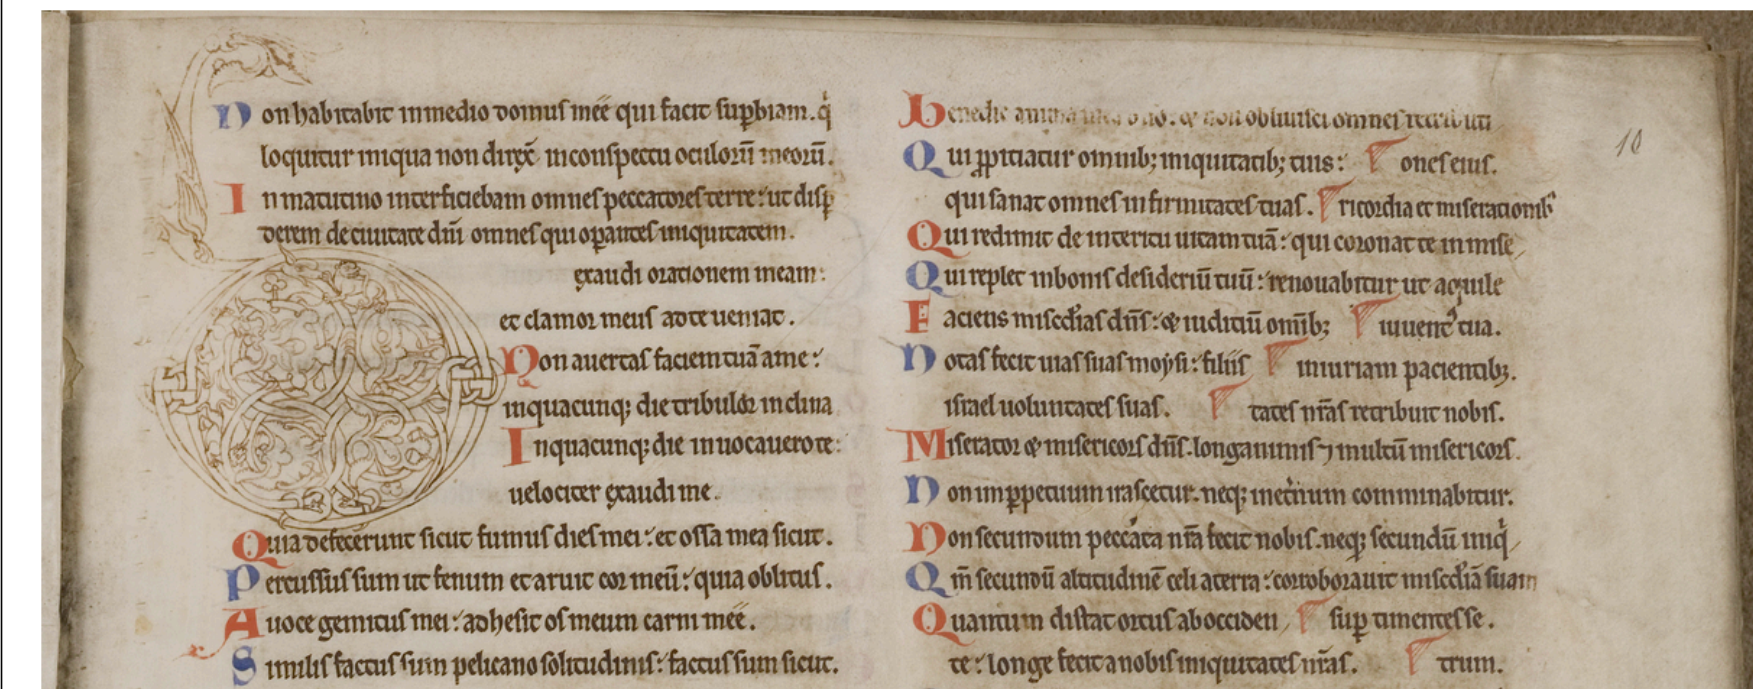 Non habitabit in medio domus mee qui facit supbiam. q
loquitur iniqua non direx̄ in conspectu oculoꝝ̄ meoꝝ̄.
In matutino interficiebam omnes peccatores terre: ut disp
derem de ciuitate dn̄i omnes qui opantes iniquitatem.
exaudi orationem meam:
et clamor meus ad te ueniat.
Non auertas faciem tuā a me:
in quacunq; die tribulor inclina
In quacunq; die inuocauero te:
uelociter exaudi me.
Quia defecerunt sicut fumus dies mei: et ossa mea sicut.
Percussus sum ut fenum et aruit cor meū: quia oblitus.
A uoce gemitus mei: adhesit os meum carni mee.
Similis factus sum pelicano solitudinis: factus sum sicut.
Benedic anima & non obliuisci omnes retributi
Qui ꝓpitiatur omnib; iniquitatib; tuis: ones eius.
qui sanat omnes infirmitates tuas. ricordia et miserationib
Qui redimit de interitu uitam tuā: qui coronat te in mise
Qui replet in bonis desideriū tuū: renouabitur ut aquile
Faciens misc̄dias dn̄s: & iudiciū om̄ib; iuuent tua.
Notas fecit uias suas moysi: filiis iniuriam pacientib;.
israel uoluntates suas. tates nr̄as retribuit nobis.
Miserator & misericors dn̄s. longanimis ⁊ multū misericors.
Non in ꝑpetuum irascetur. neq; inet̄num comminabitur.
Non secundum peccata nr̄a fecit nobis. neq; secundū iniq
Qm̄ secundū altitudinē celi a terra: corroborauit misc̄diā suam
Quantum distat ortus ab occiden sup timentes se.
te: longe fecit a nobis iniquitates nr̄as. trum.
10